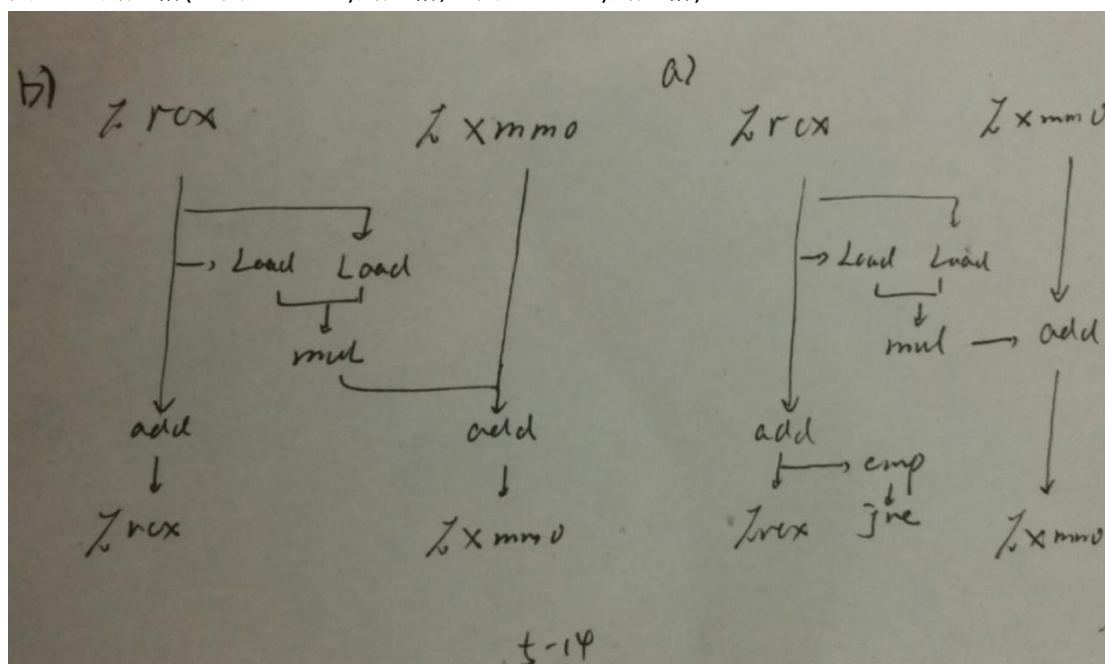 b)
% rcx
% xmm0
Load
Load
mul
add
add
% rcx
% xmm0
a)
% rcx
% xmm0
Load
Load
mul
add
add
cmp
% rcx
jne
% xmm0
5-14